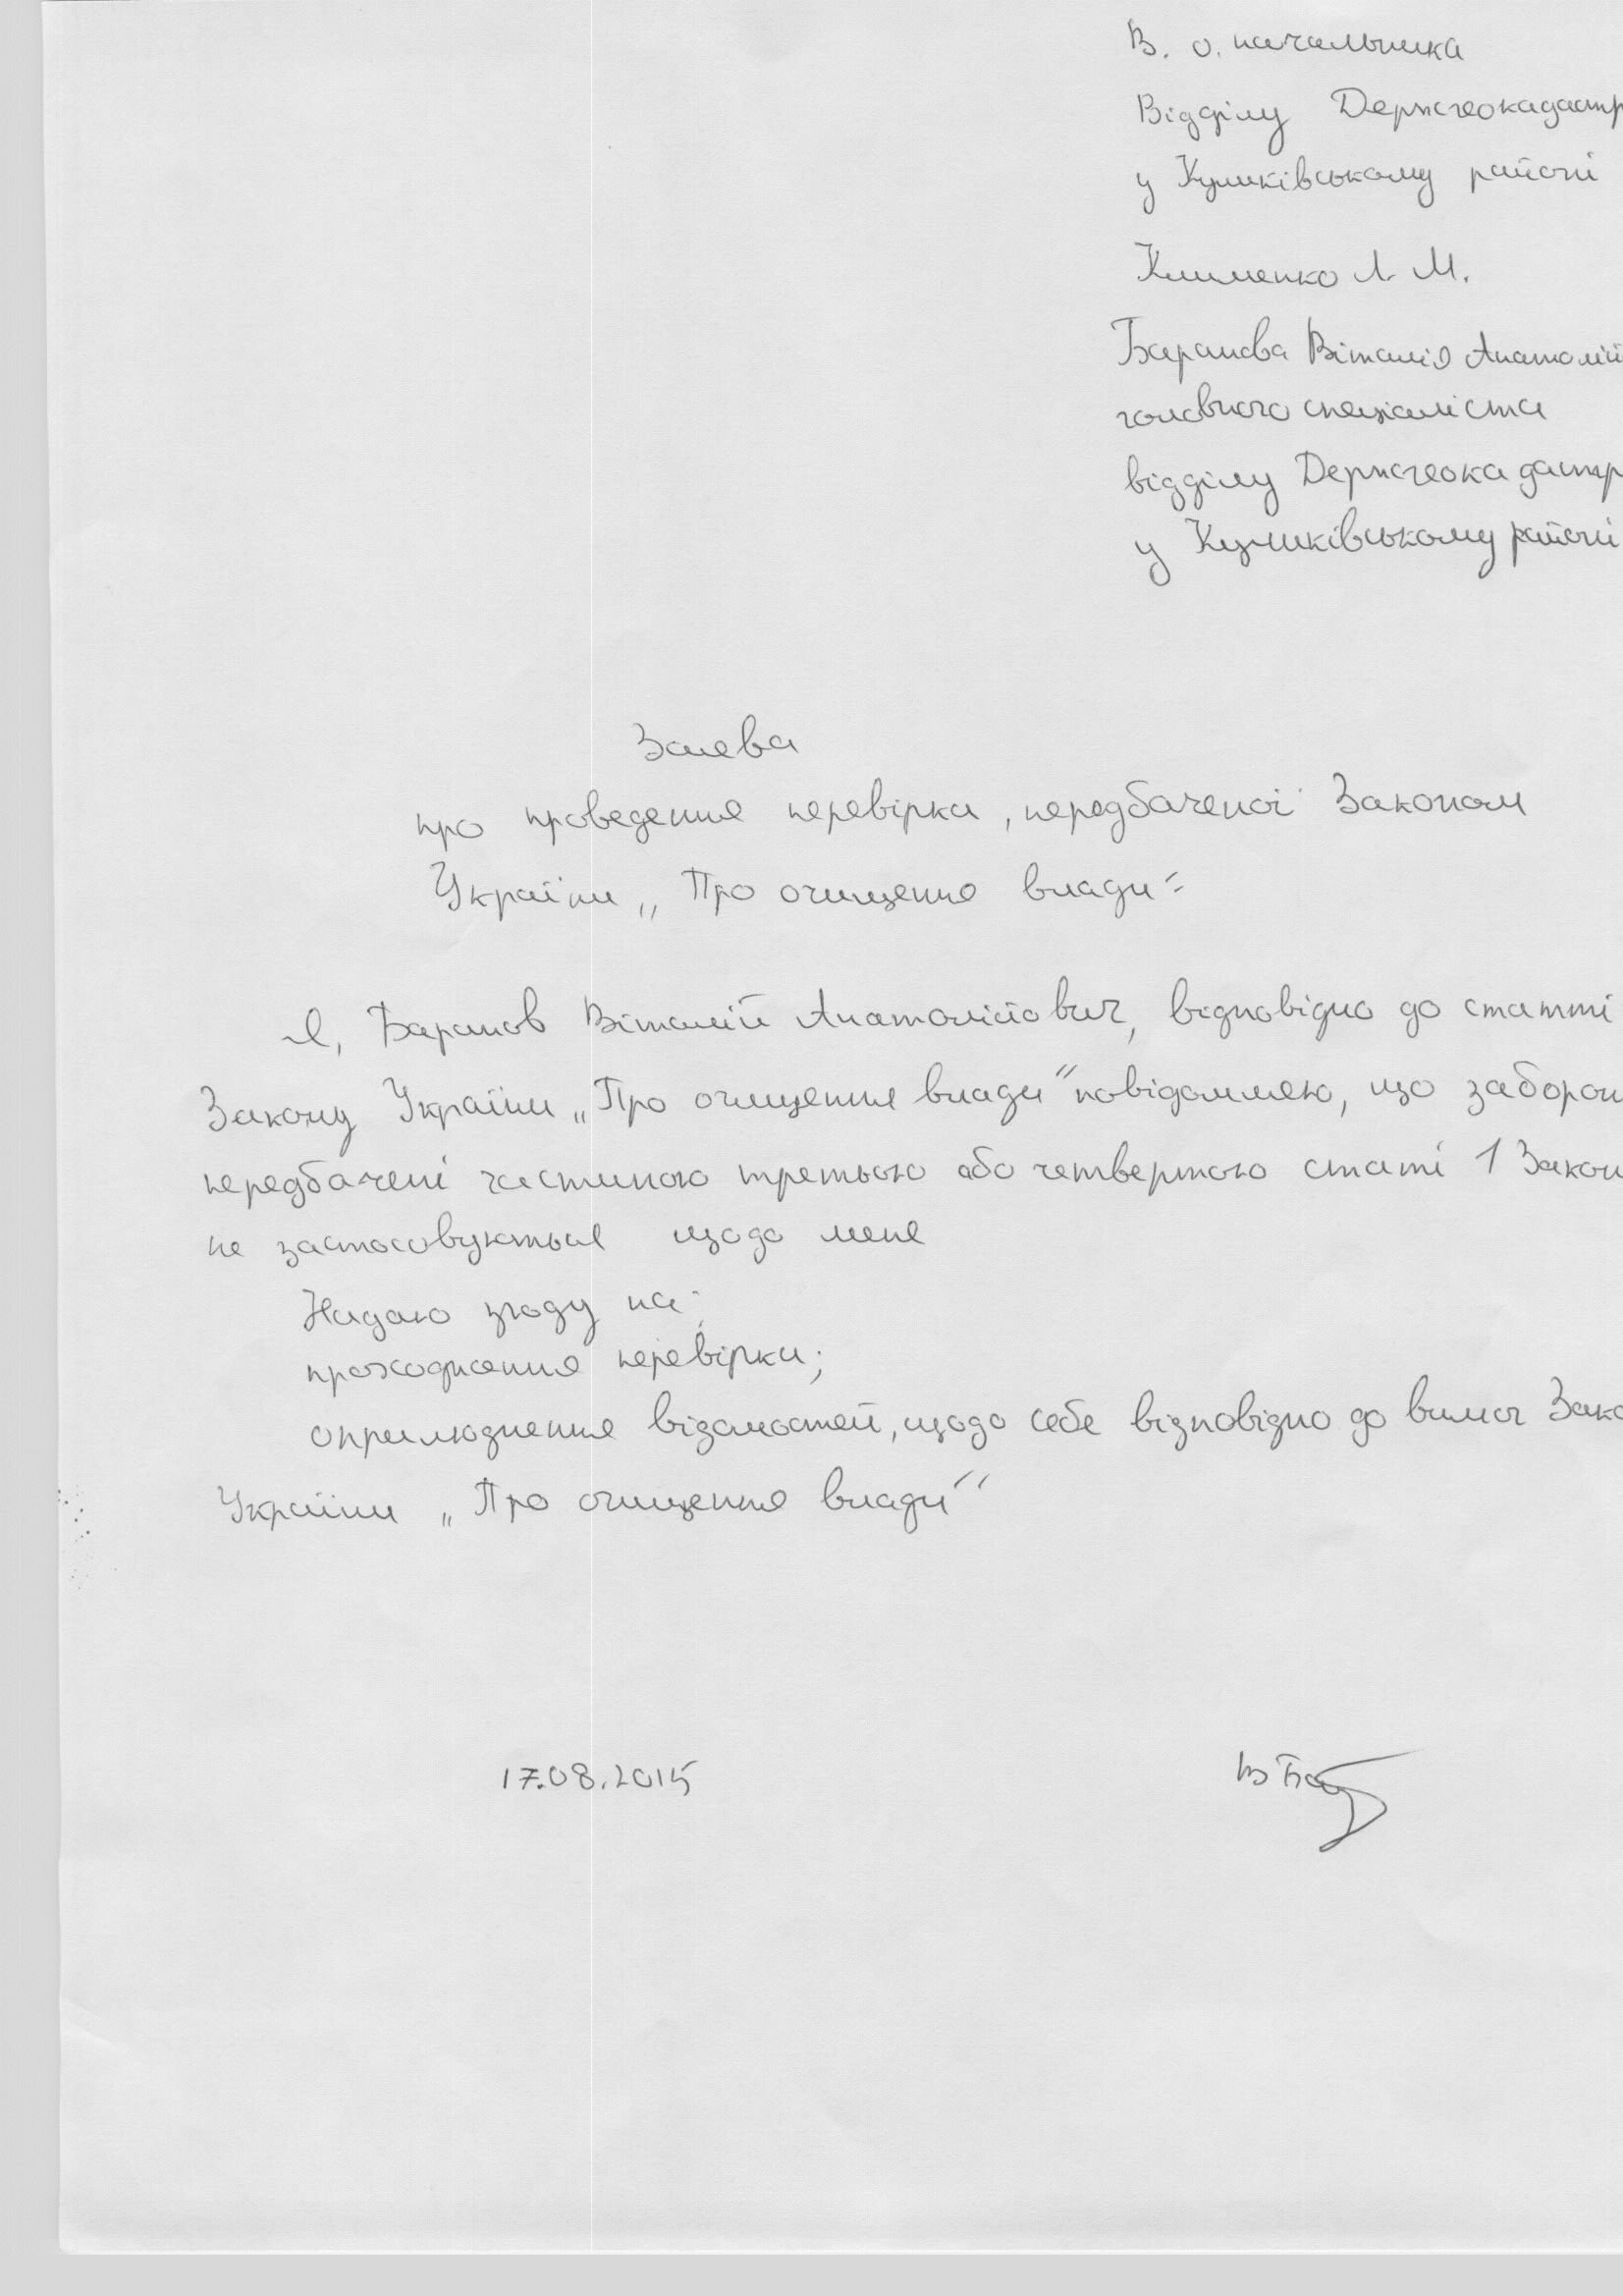 В. о. начальника
Відділу Держгеокадастр
у Куликівському районі
Клименко Л. М.
Баранова Віталія Анатолій
головного спеціаліста
відділу Держгеокадастр
у Куликівському районі
Заява
про проведення перевірки, передбаченої Законом
України „Про очищення влади"
Я, Баранов Віталій Анатолійович, відповідно до статті
Закону України „Про очищення влади" повідомляю, що заборон
передбачені частиною третьою або четвертою статі 1 Закон
не застосовуються щодо мене
Надаю згоду на:
проходження перевірки;
оприлюднення відомостей, щодо себе відповідно до вимог Зако
України „Про очищення влади"
17.08.2015